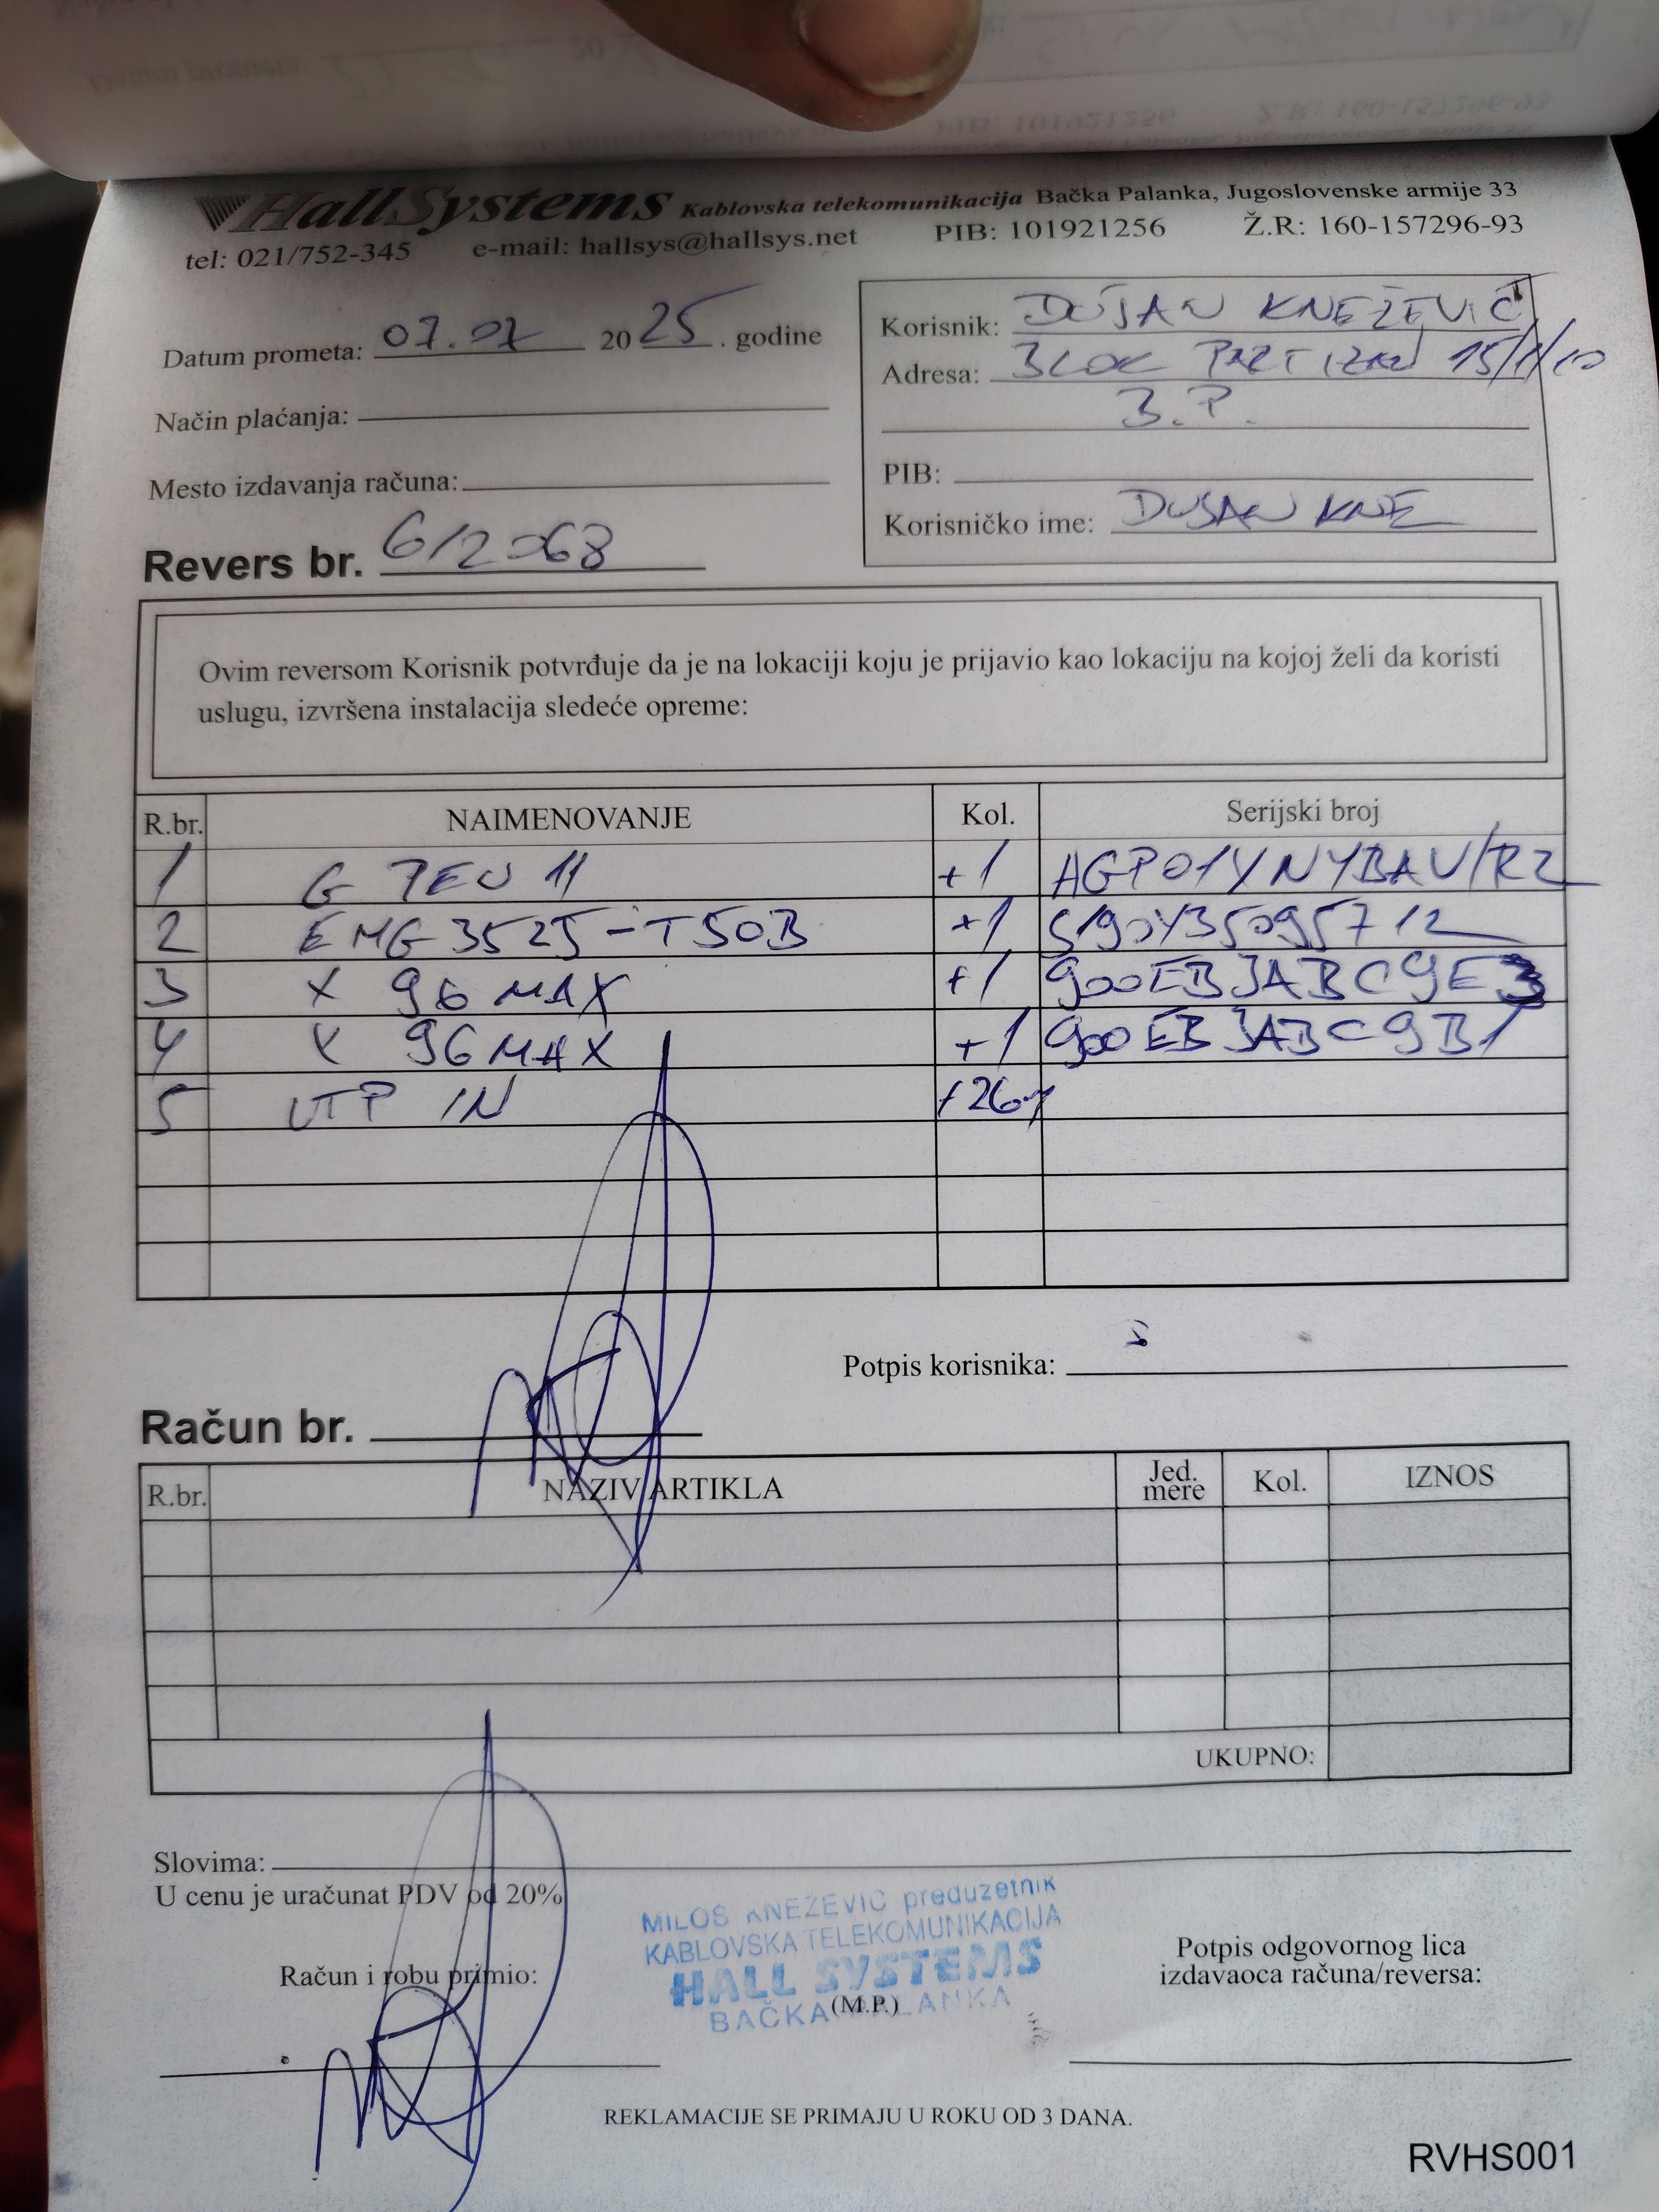 HallSystems Kablovska telekomunikacija Bačka Palanka, Jugoslovenske armije 33
tel: 021/752-345 e-mail: hallsys@hallsys.net PIB: 101921256 Ž.R: 160-157296-93
Datum prometa: 07.07 2025. godine
Način plaćanja:
Mesto izdavanja računa:
Revers br. 6/2068
Korisnik: DUŠAN KNEŽEVIĆ
Adresa: BLOK PARTIZAN 15/1/10
B.P.
PIB:
Korisničko ime: DUSAN KNE
Ovim reversom Korisnik potvrđuje da je na lokaciji koju je prijavio kao lokaciju na kojoj želi da koristi
uslugu, izvršena instalacija sledeće opreme:
R.br. NAIMENOVANJE Kol. Serijski broj
1 G +1
2 EMG 3525-T50B +1 S190Y35095712
3 X 96 MAX +1 900EBJABC9E3
4 X 96 MAX +1 900EBJABC9B1
5 UTP IN
Potpis korisnika:
Račun br.
R.br. NAZIV ARTIKLA Jed. mere Kol. IZNOS
UKUPNO:
Slovima:
U cenu je uračunat PDV od 20%
MILOŠ KNEŽEVIĆ preduzetnik
KABLOVSKA TELEKOMUNIKACIJA
HALL SYSTEMS
BAČKA PALANKA
(M.P.)
Račun i robu primio:
Potpis odgovornog lica
izdavaoca računa/reversa:
REKLAMACIJE SE PRIMAJU U ROKU OD 3 DANA.
RVHS001